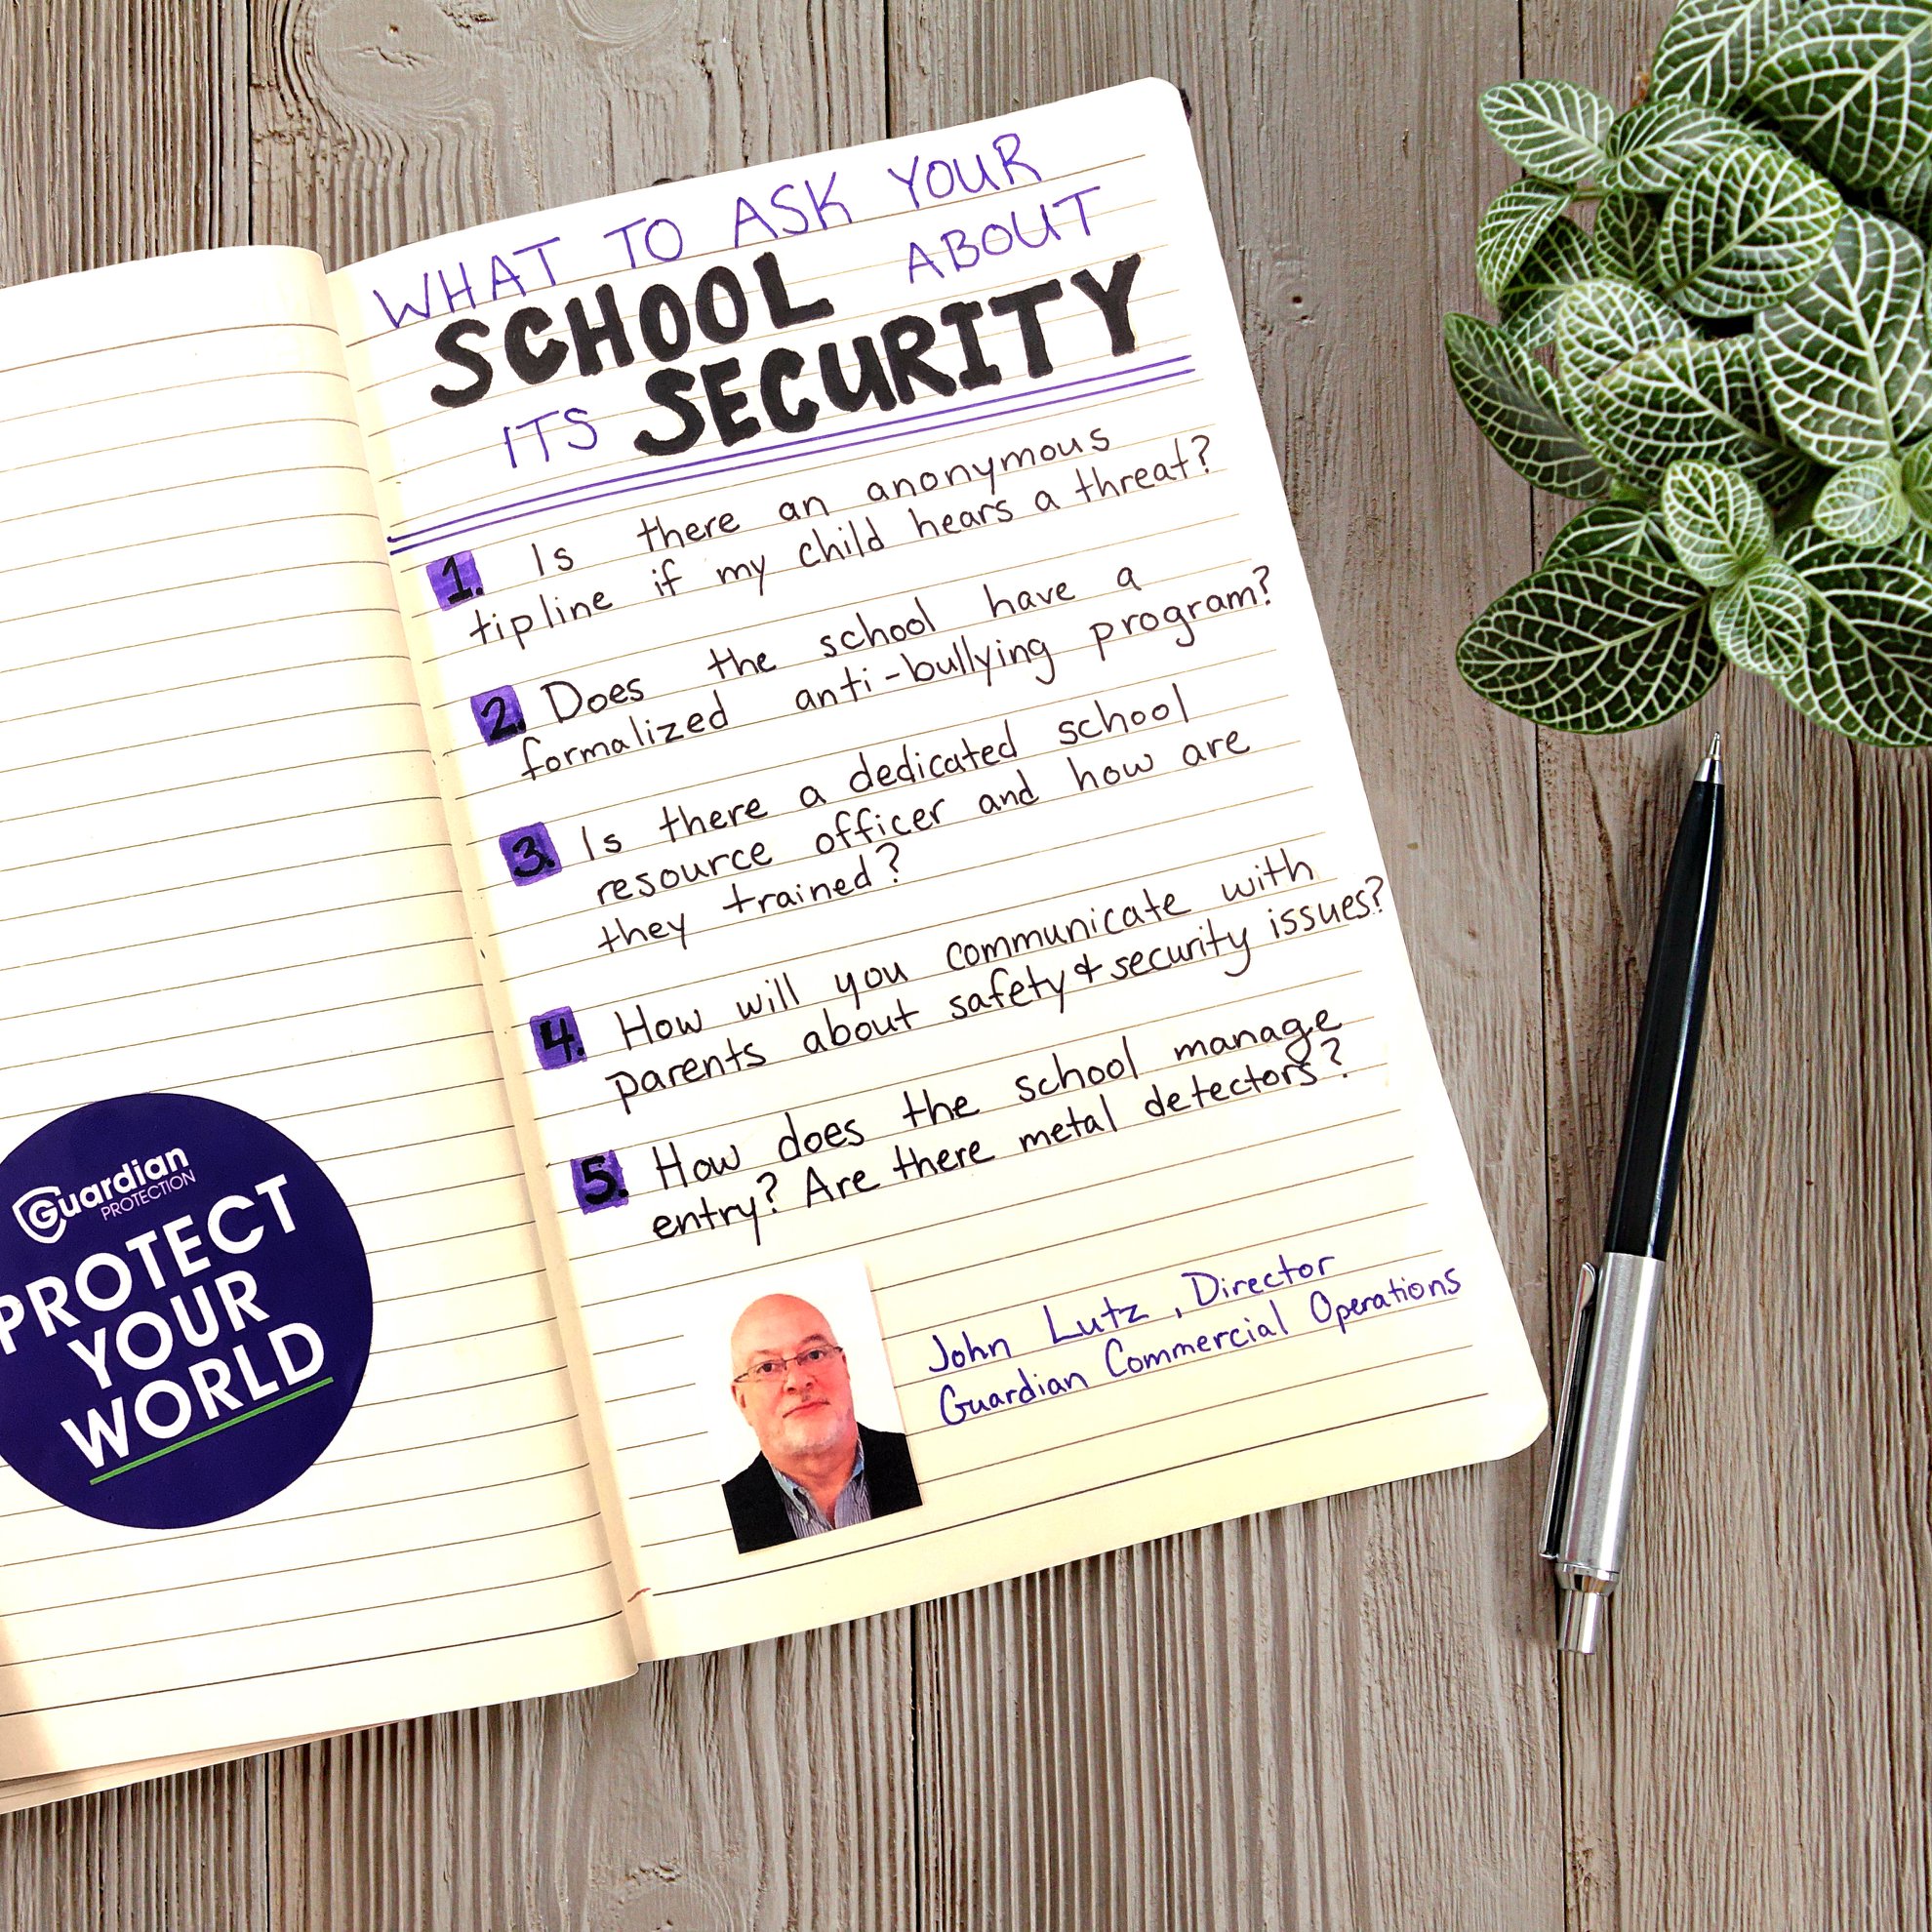 WHAT TO ASK YOUR
SCHOOL ABOUT
ITS SECURITY
1. Is there an anonymous
tipline if my child hears a threat?
2. Does the school have a
formalized anti-bullying program?
3. Is there a dedicated school
resource officer and how are
they trained?
4. How will you communicate with
parents about safety & security issues?
5. How does the school manage
entry? Are there metal detectors?
John Lutz, Director
Guardian Commercial Operations
Guardian
PROTECTION
PROTECT
YOUR
WORLD